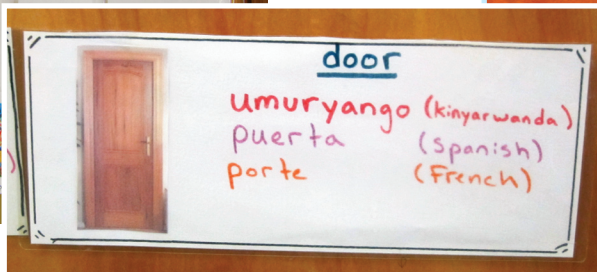 door
umuryango (kinyarwanda)
puerta (Spanish)
porte (French)